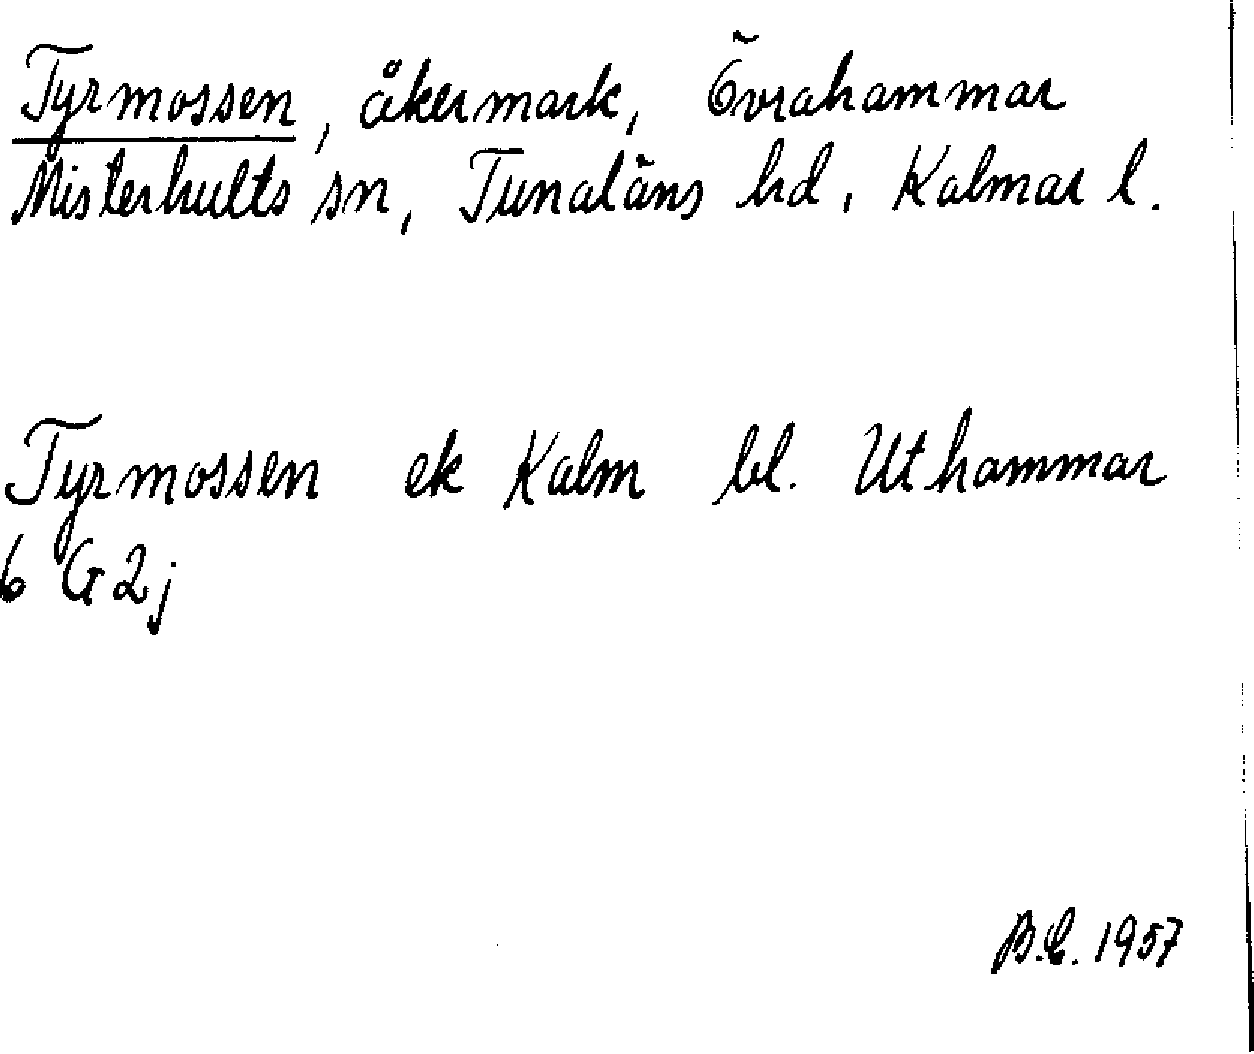 Tyrmossen, åkermark, Övrahammar
Misterhults sn, Tunaläns hd, Kalmar l.
Tyrmossen ek Kalm bl. Uthammar
6 G 2j
B.C. 1957